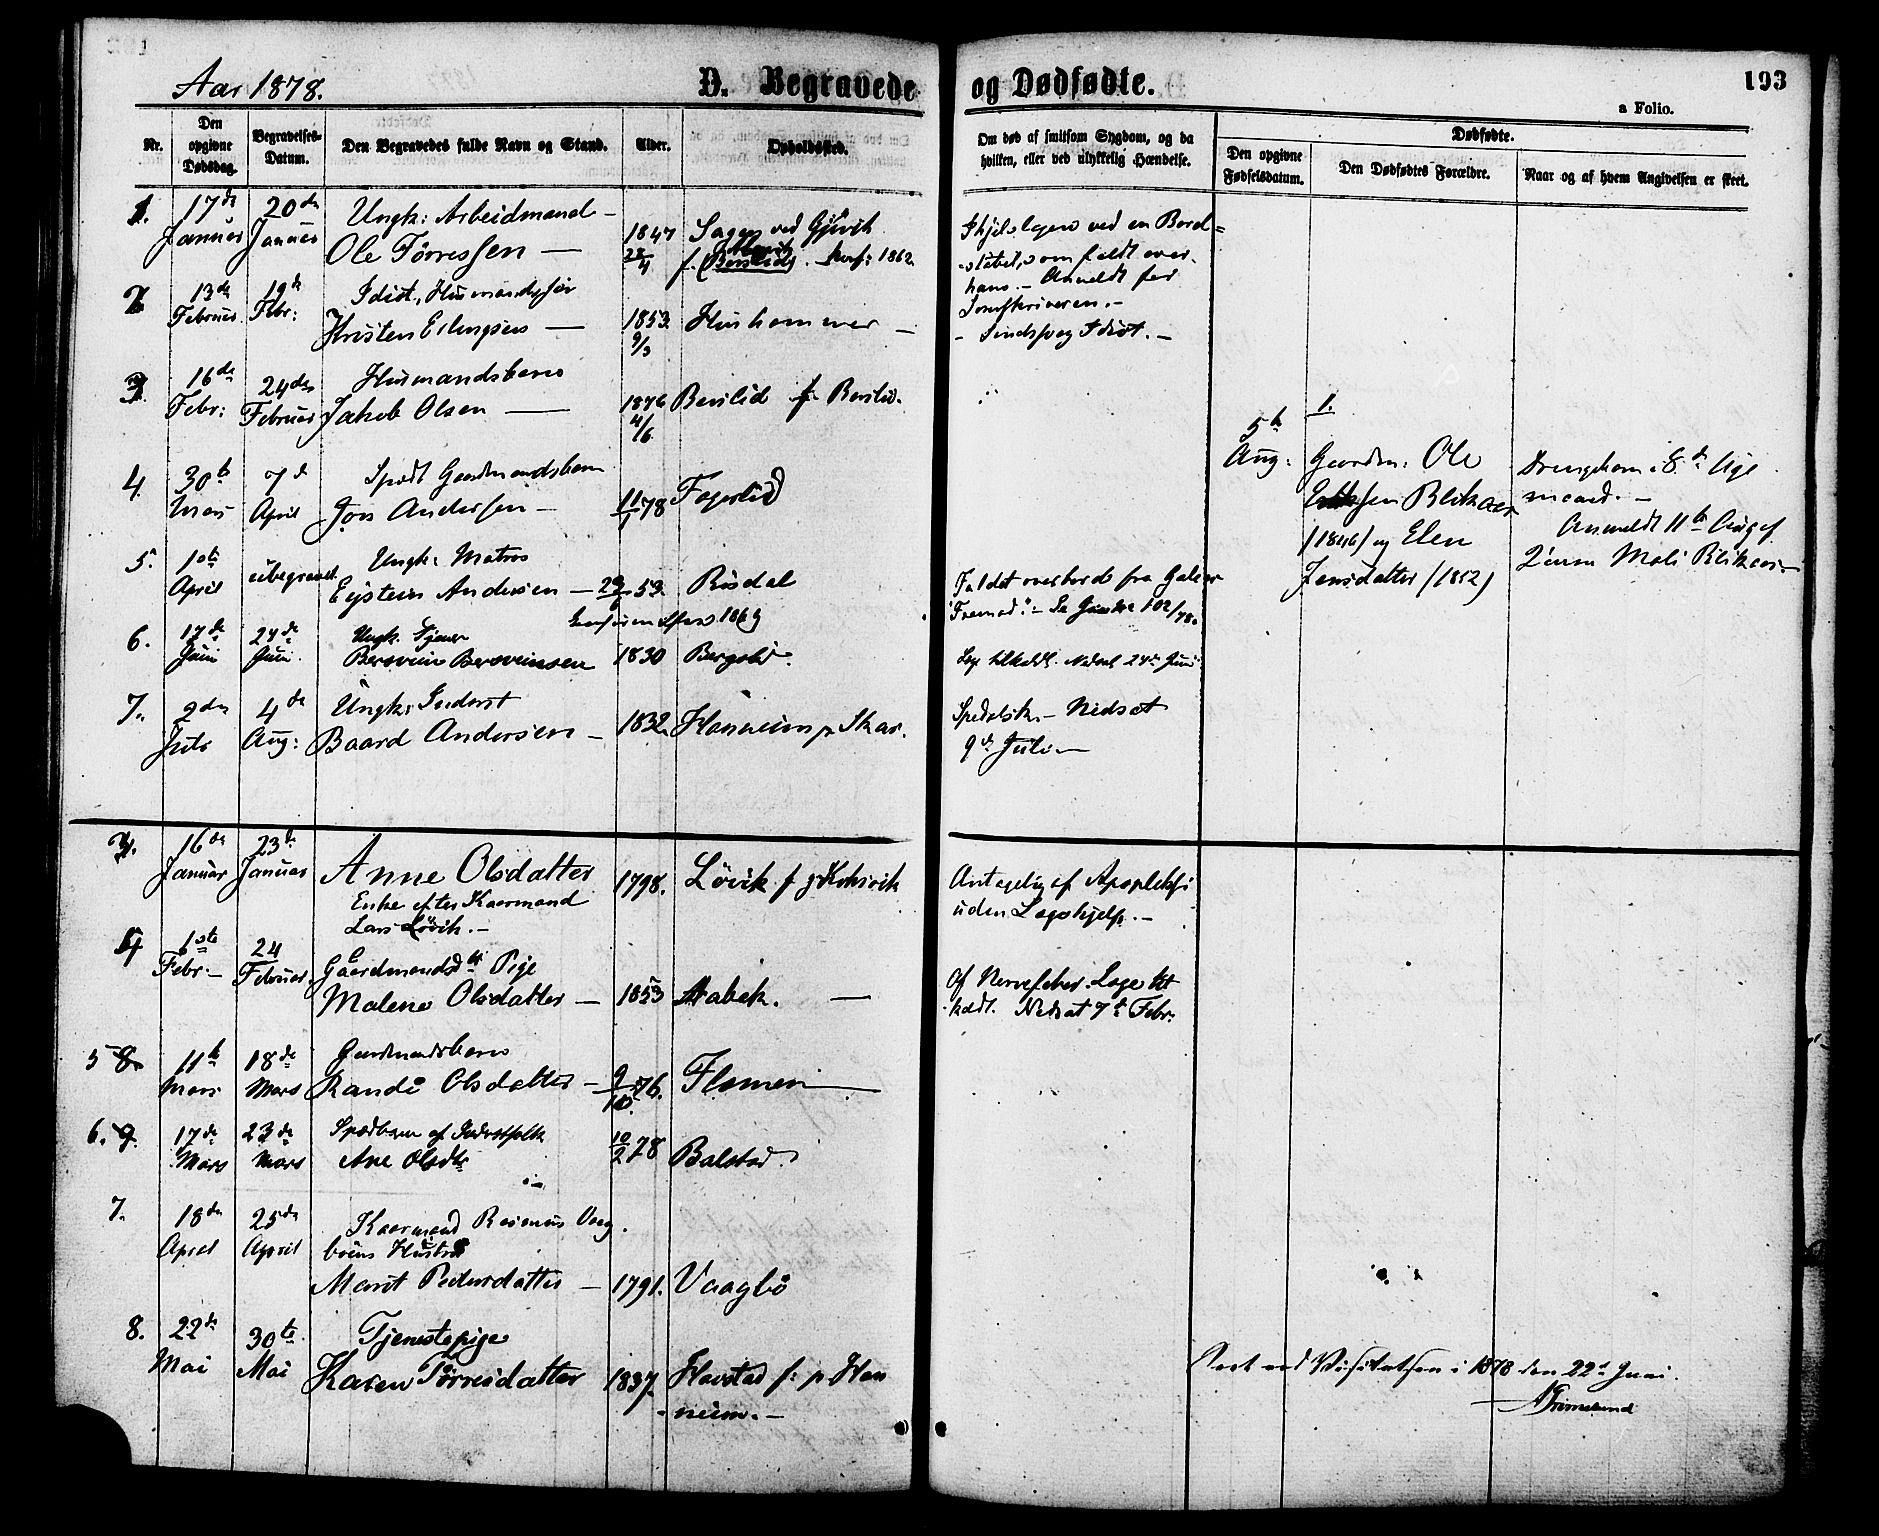 Aar 1878.
D. Begravede og Dødfødte.
193
a Folio.
Nr.
Den opgivne Dødsdag.
Begravelses-Datum.
Den Begravedes fulde Navn og Stand.
Alder.
Opholdssted.
Om død af smitsom Sygdom, og da
hvilken, eller ved ulykkelig Hændelse.
Dødfødte.
Den opgivne Fødselsdatum.
Den Dødfødtes Forældre.
Naar og af hvem Angivelsen er skeet.
1.
17de Januar
20de Januar
Ungk: Arbeidmand
Ole Tørressen
1847
22/4
Sagen ved Gjørvik
f. Berslid. Conf: 1862
Ihjelslagen ved en Bord-
stabel, som faldt over
ham. - Anmeldt for
Sorenskriveren. -
2
13de Februar
19de Febr:
Idiot, Husmandssøn
Kristen Erlingsen
1853
9/3
Hushammer
Sindssvag Idiot. -
3
16de Febr:
24de Februar
Husmandsbarn
Jakob Olsen
1876
4/6
Berslid f. Berslid.
4
30te Mars
7de April
Spædt Gaardmandsbarn
Jon Andersen
11/1 78
Fagerlid
5.
1ste April
ubegravet
Ungk: Matros
Eystein Andersen
53.
Risdal
Faldet overbord fra Galeas
"Fremad". -
6.
17de Juni
24de Juni.
Ungk. Tjener
Bersvein Bersveinsen
1830
Bergslid.
Læge tilkaldt. Nedsat 24de Juni
7.
2den Juli
4de Aug:
Ungk: Inderst
Baard Andersen
1832
Hanneim p. Skar.
Spedalsk. - Nedsat
9de Juli
1.
5te Aug:
Gaardm: Ole
Blikaas
(1846) og Elen
Jensdatter (1852)
Drengebarn i 8de Uge
maaned. -
Anmeldt 11te Aug af
Mali Blikaas. -
3.
16de Januar
23de Januar
Anne Olsdatter
Enke efter Kaarmand
Lars Løvik. -
1798.
Løvik f.
Antagelig af Apoplexi
uden Lægehjelp. -
4
1ste Febr.
24 Februar
Gaardmandsdtr Pige
Malene Olsdatter
1853
Stabek.
Af Nervefeber. Læge til-
kaldt. Nedsat 7de Febr.
5 8.
11te Mars
18de Mars
Gaardmandsbarn
Randi Olsdatter
9/10 76.
Flemmen
6. 9.
17de Mars
23de Mars
Spædbarn af Inderstfolk
Ane Olsdtr
10/2 78
Balstad.
7.
18de April
25de April
Kaarmand Rasmus Vaag-
bøens Hustru
Marit Pedersdatter
1791.
Vaagbø
8.
22de Mai
30te Mai
Tjenestepige
Karen Tørresdatter
1837.
Havstad f: p. Han
neim. -
Seet ved Visitatsen i 1878 den 22de Juni.